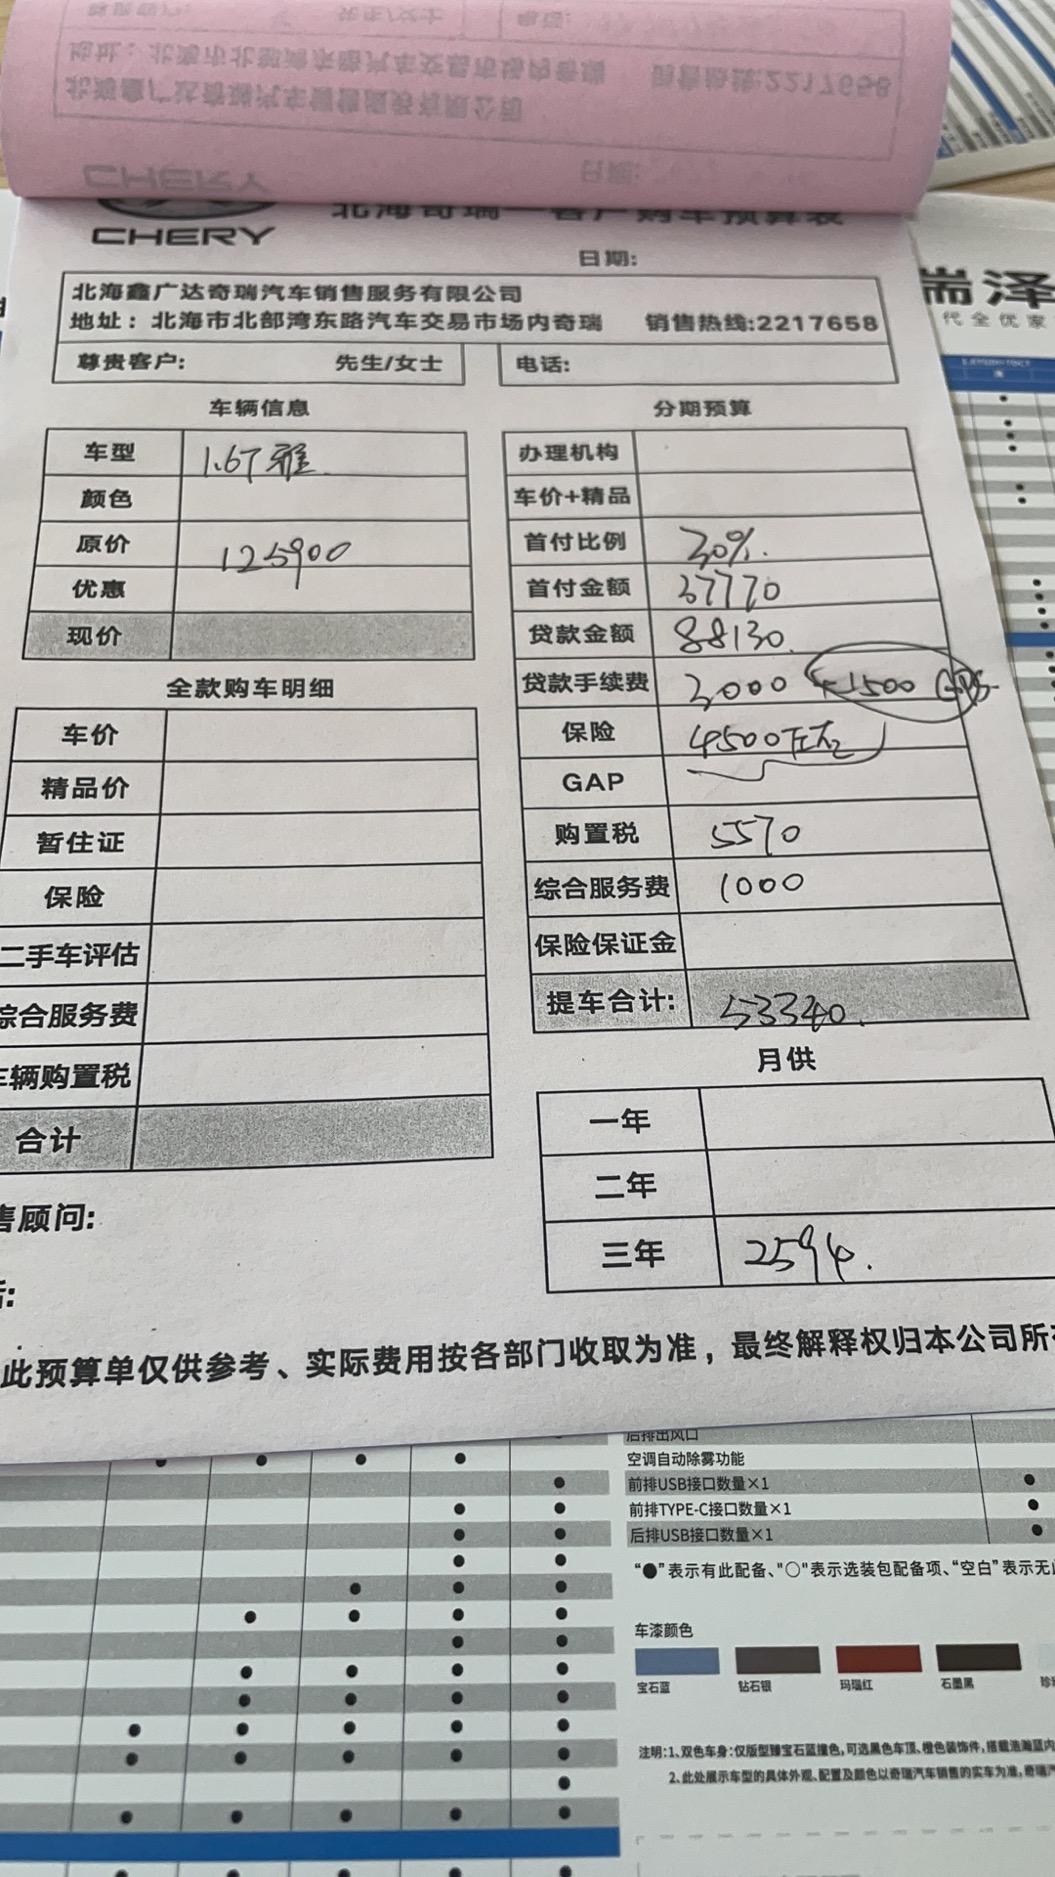 CHERY
北海奇瑞一客户购车预算表
日期:
北海鑫广达奇瑞汽车销售服务有限公司
地址：北海市北部湾东路汽车交易市场内奇瑞 销售热线:2217658
尊贵客户: 先生/女士 电话:
车辆信息
车型 1.6T 雅
颜色
原价 125900
优惠
现价
全款购车明细
车价
精品价
暂住证
保险
二手车评估
综合服务费
车辆购置税
合计
售顾问:
分期预算
办理机构
车价+精品
首付比例 30%.
首付金额 37770
贷款金额 88130.
贷款手续费 3000 +1500 GPS
保险 4500左右
GAP
购置税 5570
综合服务费 1000
保险保证金
提车合计: 53340.
月供
一年
二年
三年 2594.
此预算单仅供参考、实际费用按各部门收取为准，最终解释权归本公司所
瑞泽
代全优家
后排出风口
空调自动除雾功能
前排USB接口数量×1
前排TYPE-C接口数量×1
后排USB接口数量×1
“●”表示有此配备、"○"表示选装包配备项、“空白”表示无
车漆颜色
宝石蓝 钻石银 玛瑙红 石墨黑
注明:1、双色车身:仅版型臻宝石蓝撞色,可选黑色车顶、橙色装饰件,搭载浩瀚蓝内
2、此处展示车型的具体外观、配置及颜色以奇瑞汽车销售的实车为准,奇瑞汽